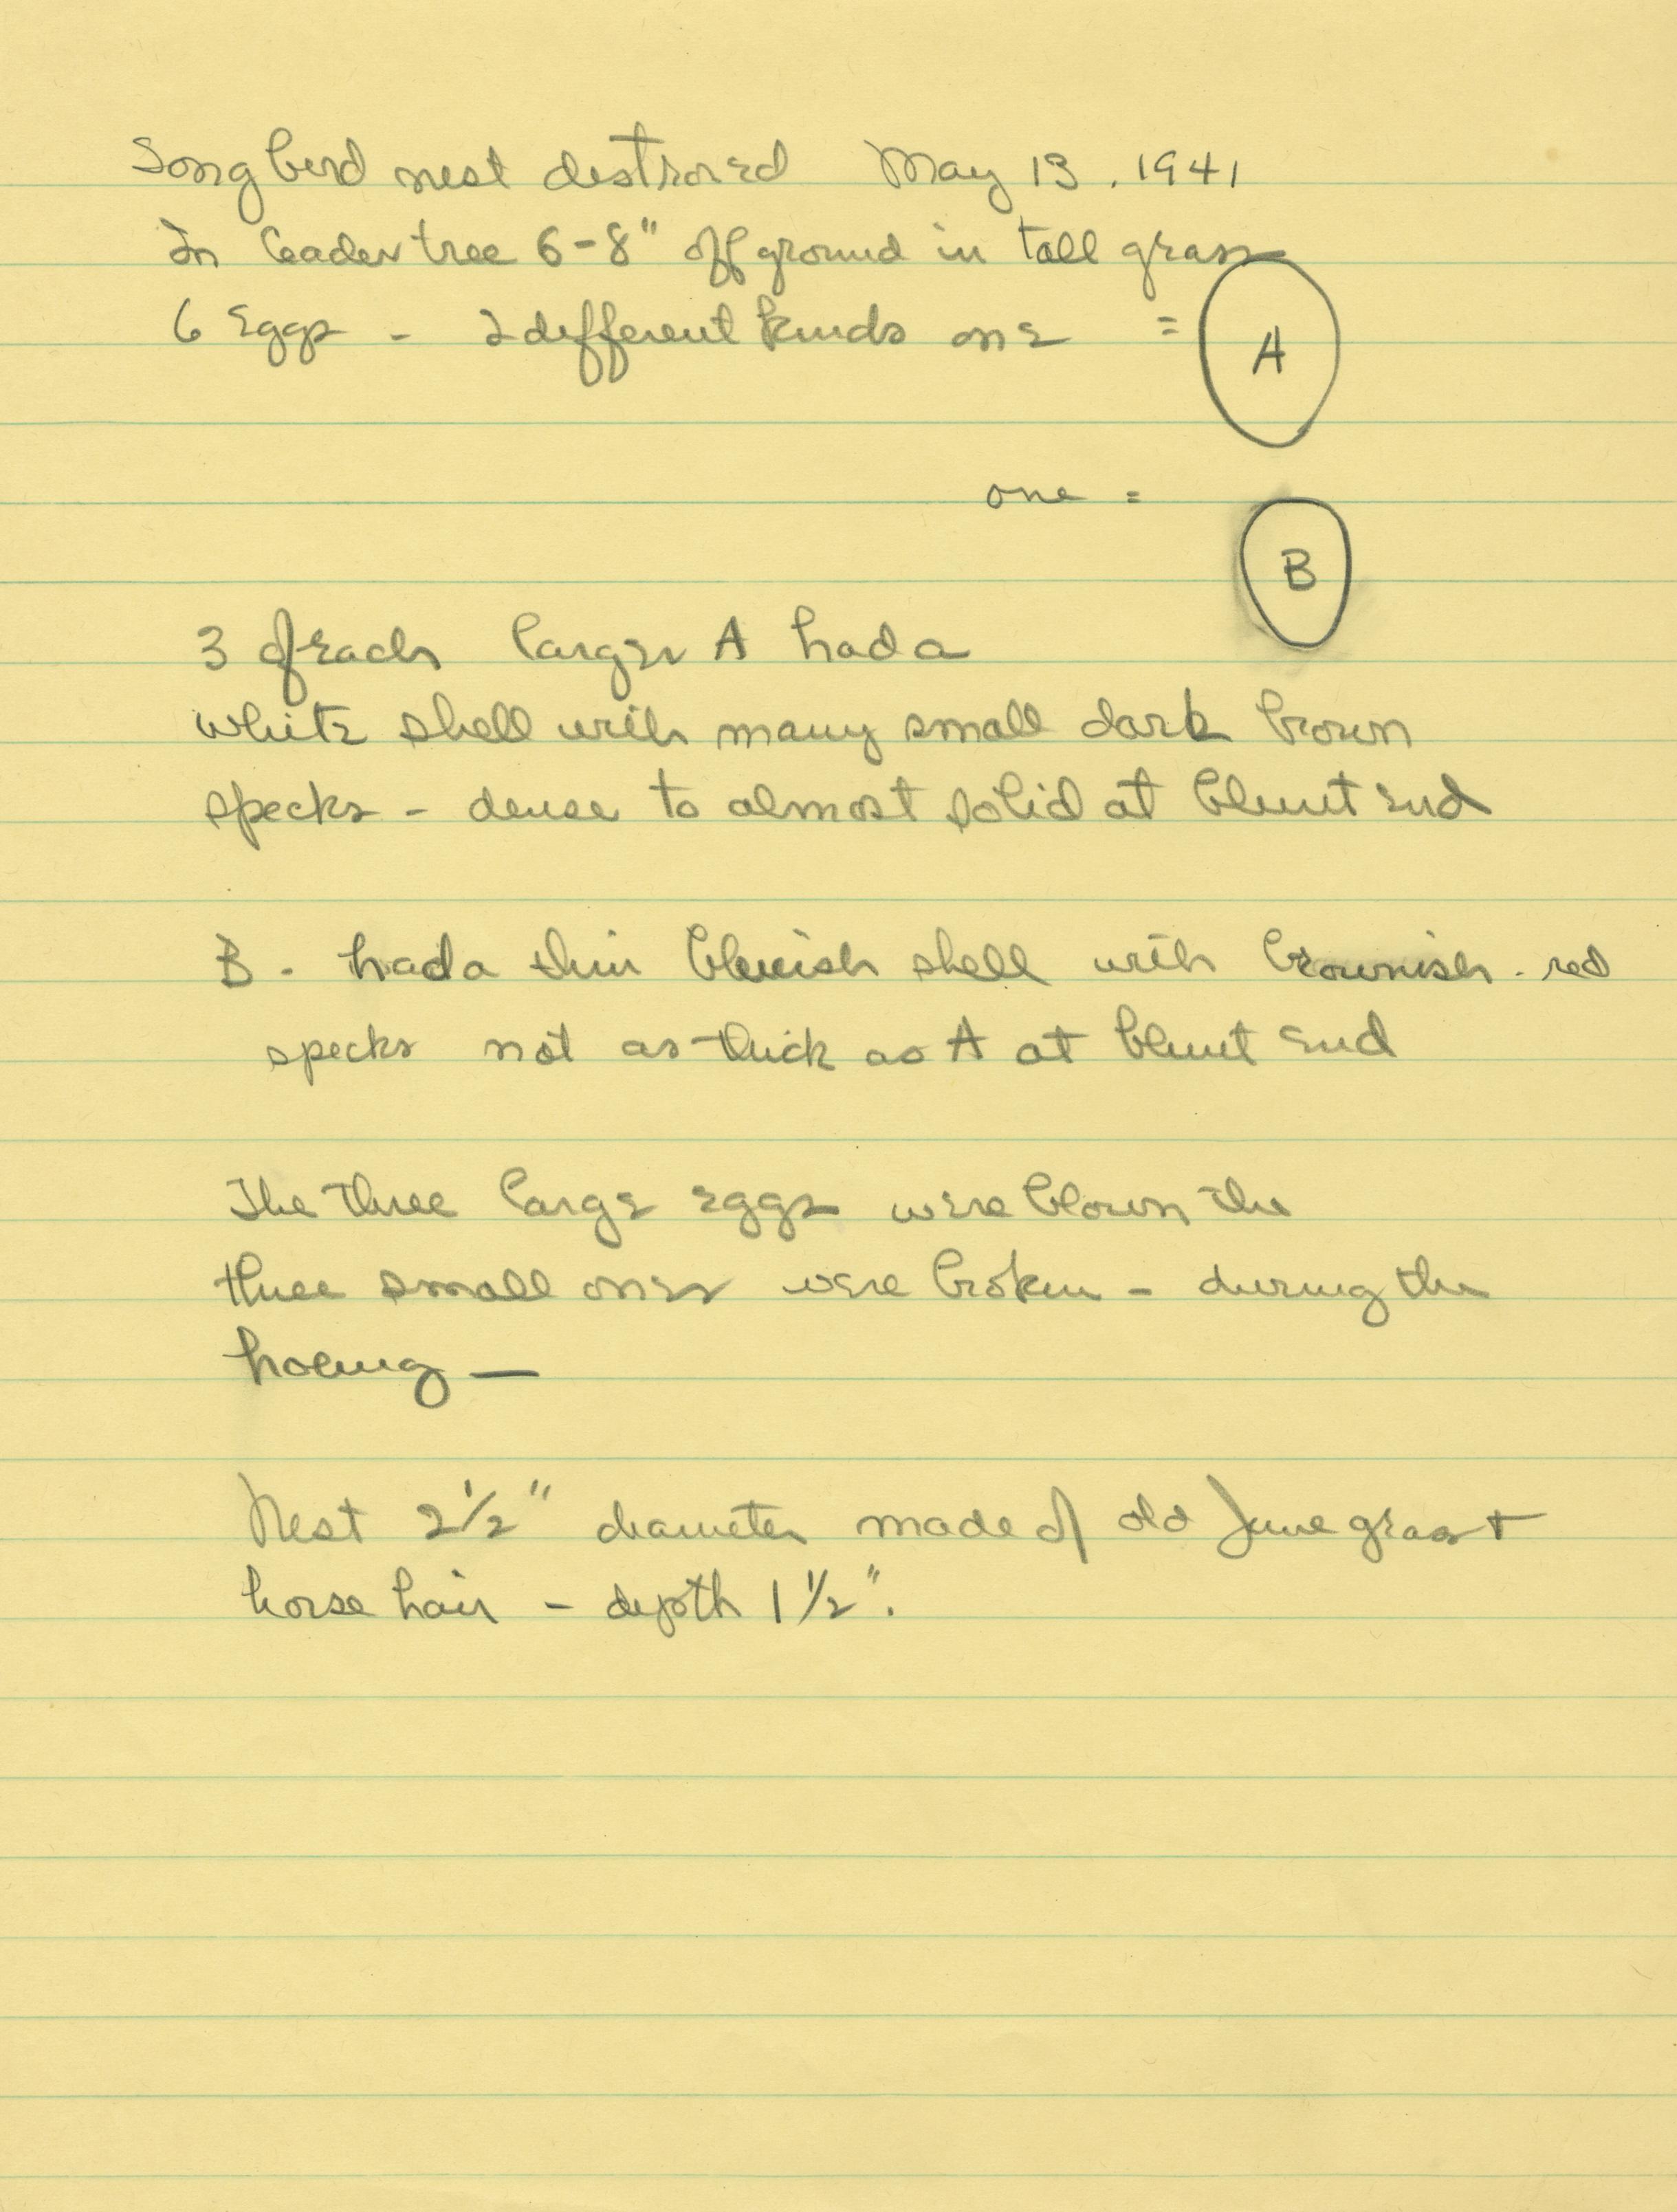 Song bird nest destroyed May 13, 1941
In leader tree 6-8" off ground in tall grass
6 Eggs - 2 different kinds one = A
one = B
3 of each larger A had a
white shell with many small dark brown
specks - dense to almost solid at blunt end
B - had a thin bluish shell with brownish-red
specks not as thick as A at blunt end
The three large eggs were blown the
three small ones were broken - during the
hoeing —
Nest 2 1/2" diameter made of old June grass +
horse hair - depth 1 1/2".